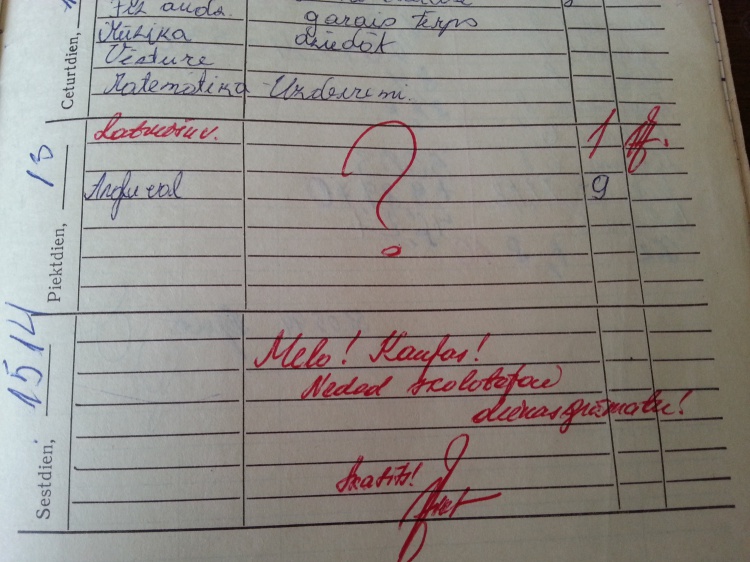 Ceturtdien,
Fiz. audz. garais terps
Mūzika dziedāt
Vēsture
Matemātika Uzdevumi.
Piektdien, 13
Latviešu v. ? 1
Angļu val 9
Sestdien, 15 14
Melo! Kaujas!
Nedod skolotājai
dienasgrāmatu!
Skatīts!